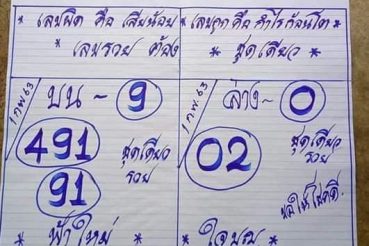 * เลขผิด คือ เสียน้อย * เลขถูก คือ กำไรก้อนโต *
* เลขรวย ต้อง * ชุดเดียว *
1 กพ 63 บน ~ 9
491 ชุดเดียว รวย
91
* ฟ้าใหม่ *
1 กพ 63 ล่าง ~ 0
02 ชุดเดียว รวย
ขอให้โชคดี
* ใจบุญ *